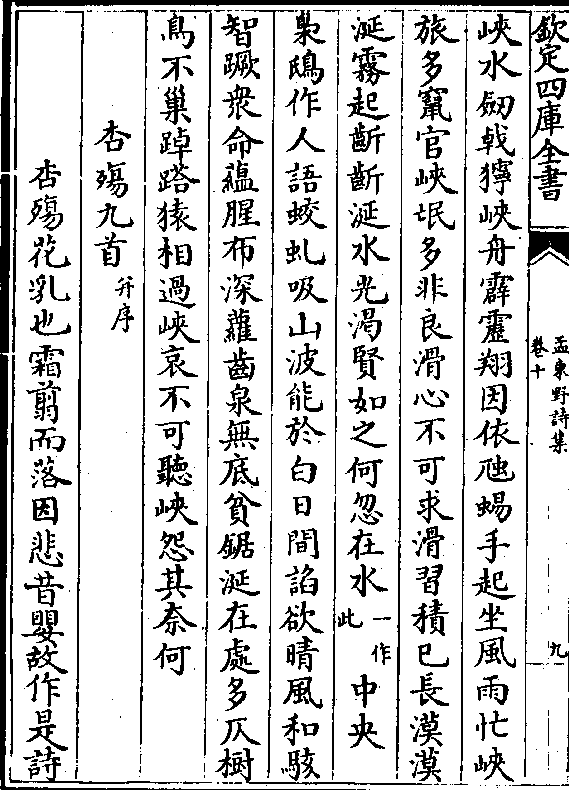 欽定四庫全書
孟東野詩集
卷十
九
峽水劒戟獰峽舟霹靂翔因依虺蜴手起坐風雨忙峽
旅多竄官峽氓多非良滑心不可求滑習積已長漠漠
涎霧起齗齗涎水光渴賢如之何忽在水一作此中央
梟鴟作人語蛟虬吸山波能於白日間諂欲晴風和駭
智蹶衆命蘊腥布深蘿齒泉無底貧鋸涎在處多仄樹
鳥不巢踔𨅔猿相過峽哀不可聽峽怨其奈何
杏殤九首并序
杏殤花乳也霜翦而落因悲昔嬰故作是詩